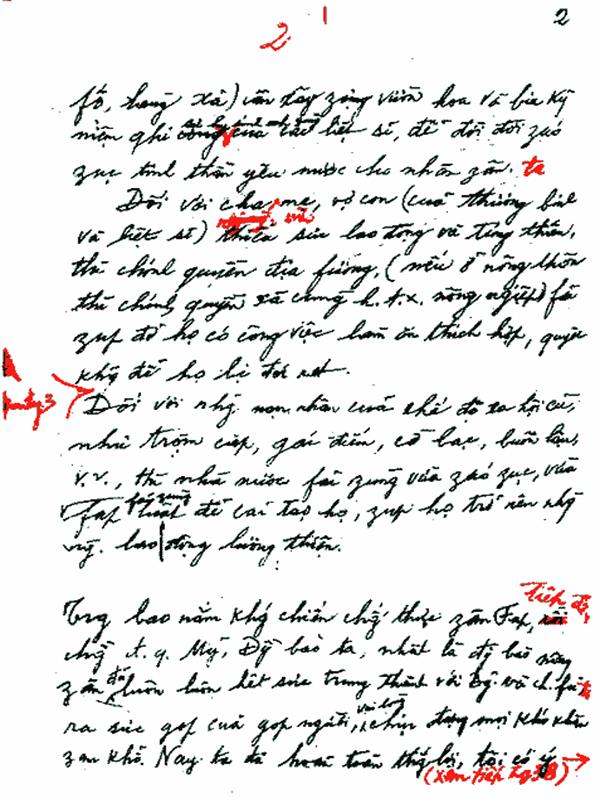 2 2
fố, làng xã) cần xây zựng vườn hoa và bia kỷ
niệm ghi sự hy sinh anh zũng của các liệt sĩ, để đời đời záo
zục tinh thần yêu nước cho nhân zân ta
Đối với cha mẹ, vợ con (của thương binh
và liệt sĩ) thiếu sức lao động và túng thiếu,
thì chính quyền địa fương, (nếu ở nông thôn
thì chính quyền xã cùng h.t.x. nông nghiệp) fải
zúp đỡ họ có công việc làm ăn thích hợp, quyết
khg để họ bị đói rét.
Đối với nhg. nạn nhân của chế độ xã hội cũ,
như trộm cắp, gái điếm, cờ bạc, buôn lậu,
v.v., thì nhà nước fải zùng vừa záo zục, vừa
fải zùng
fáp luật để cải tạo họ, zúp họ trở nên nhg
ng. lao động lương thiện.
Trg bao năm khg chiến chg thực zân Fáp, tiếp đó,
chg đ.q. Mỹ, Đg bào ta, nhất là đg bào nông
zân đã luôn luôn hết sức trung thành với Đg. và ch.fủ ta
ra sức góp của góp người, vui lòng chịu đựng mọi khó khăn
zan khổ. Nay ta đã hoàn toàn thắg lợi, tôi có ý
(xem tiếp tg 3B)